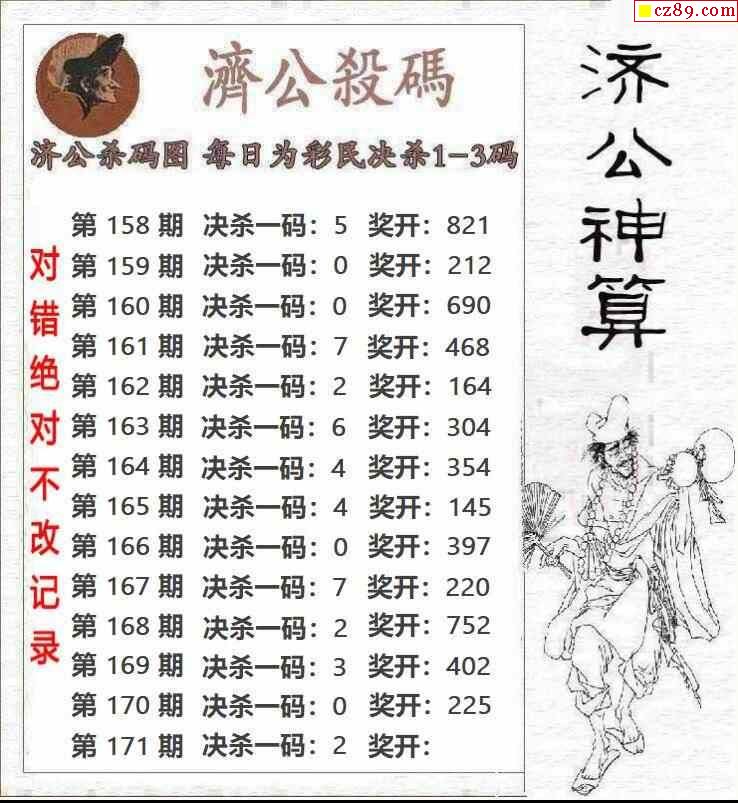 cz89.com
濟公殺碼
济公杀码图 每日为彩民决杀1-3码
第 158 期 决杀一码：5 奖开：821
第 159 期 决杀一码：0 奖开：212
第 160 期 决杀一码：0 奖开：690
第 161 期 决杀一码：7 奖开：468
第 162 期 决杀一码：2 奖开：164
第 163 期 决杀一码：6 奖开：304
第 164 期 决杀一码：4 奖开：354
第 165 期 决杀一码：4 奖开：145
第 166 期 决杀一码：0 奖开：397
第 167 期 决杀一码：7 奖开：220
第 168 期 决杀一码：2 奖开：752
第 169 期 决杀一码：3 奖开：402
第 170 期 决杀一码：0 奖开：225
第 171 期 决杀一码：2 奖开：
对错绝对不改记录
济公神算